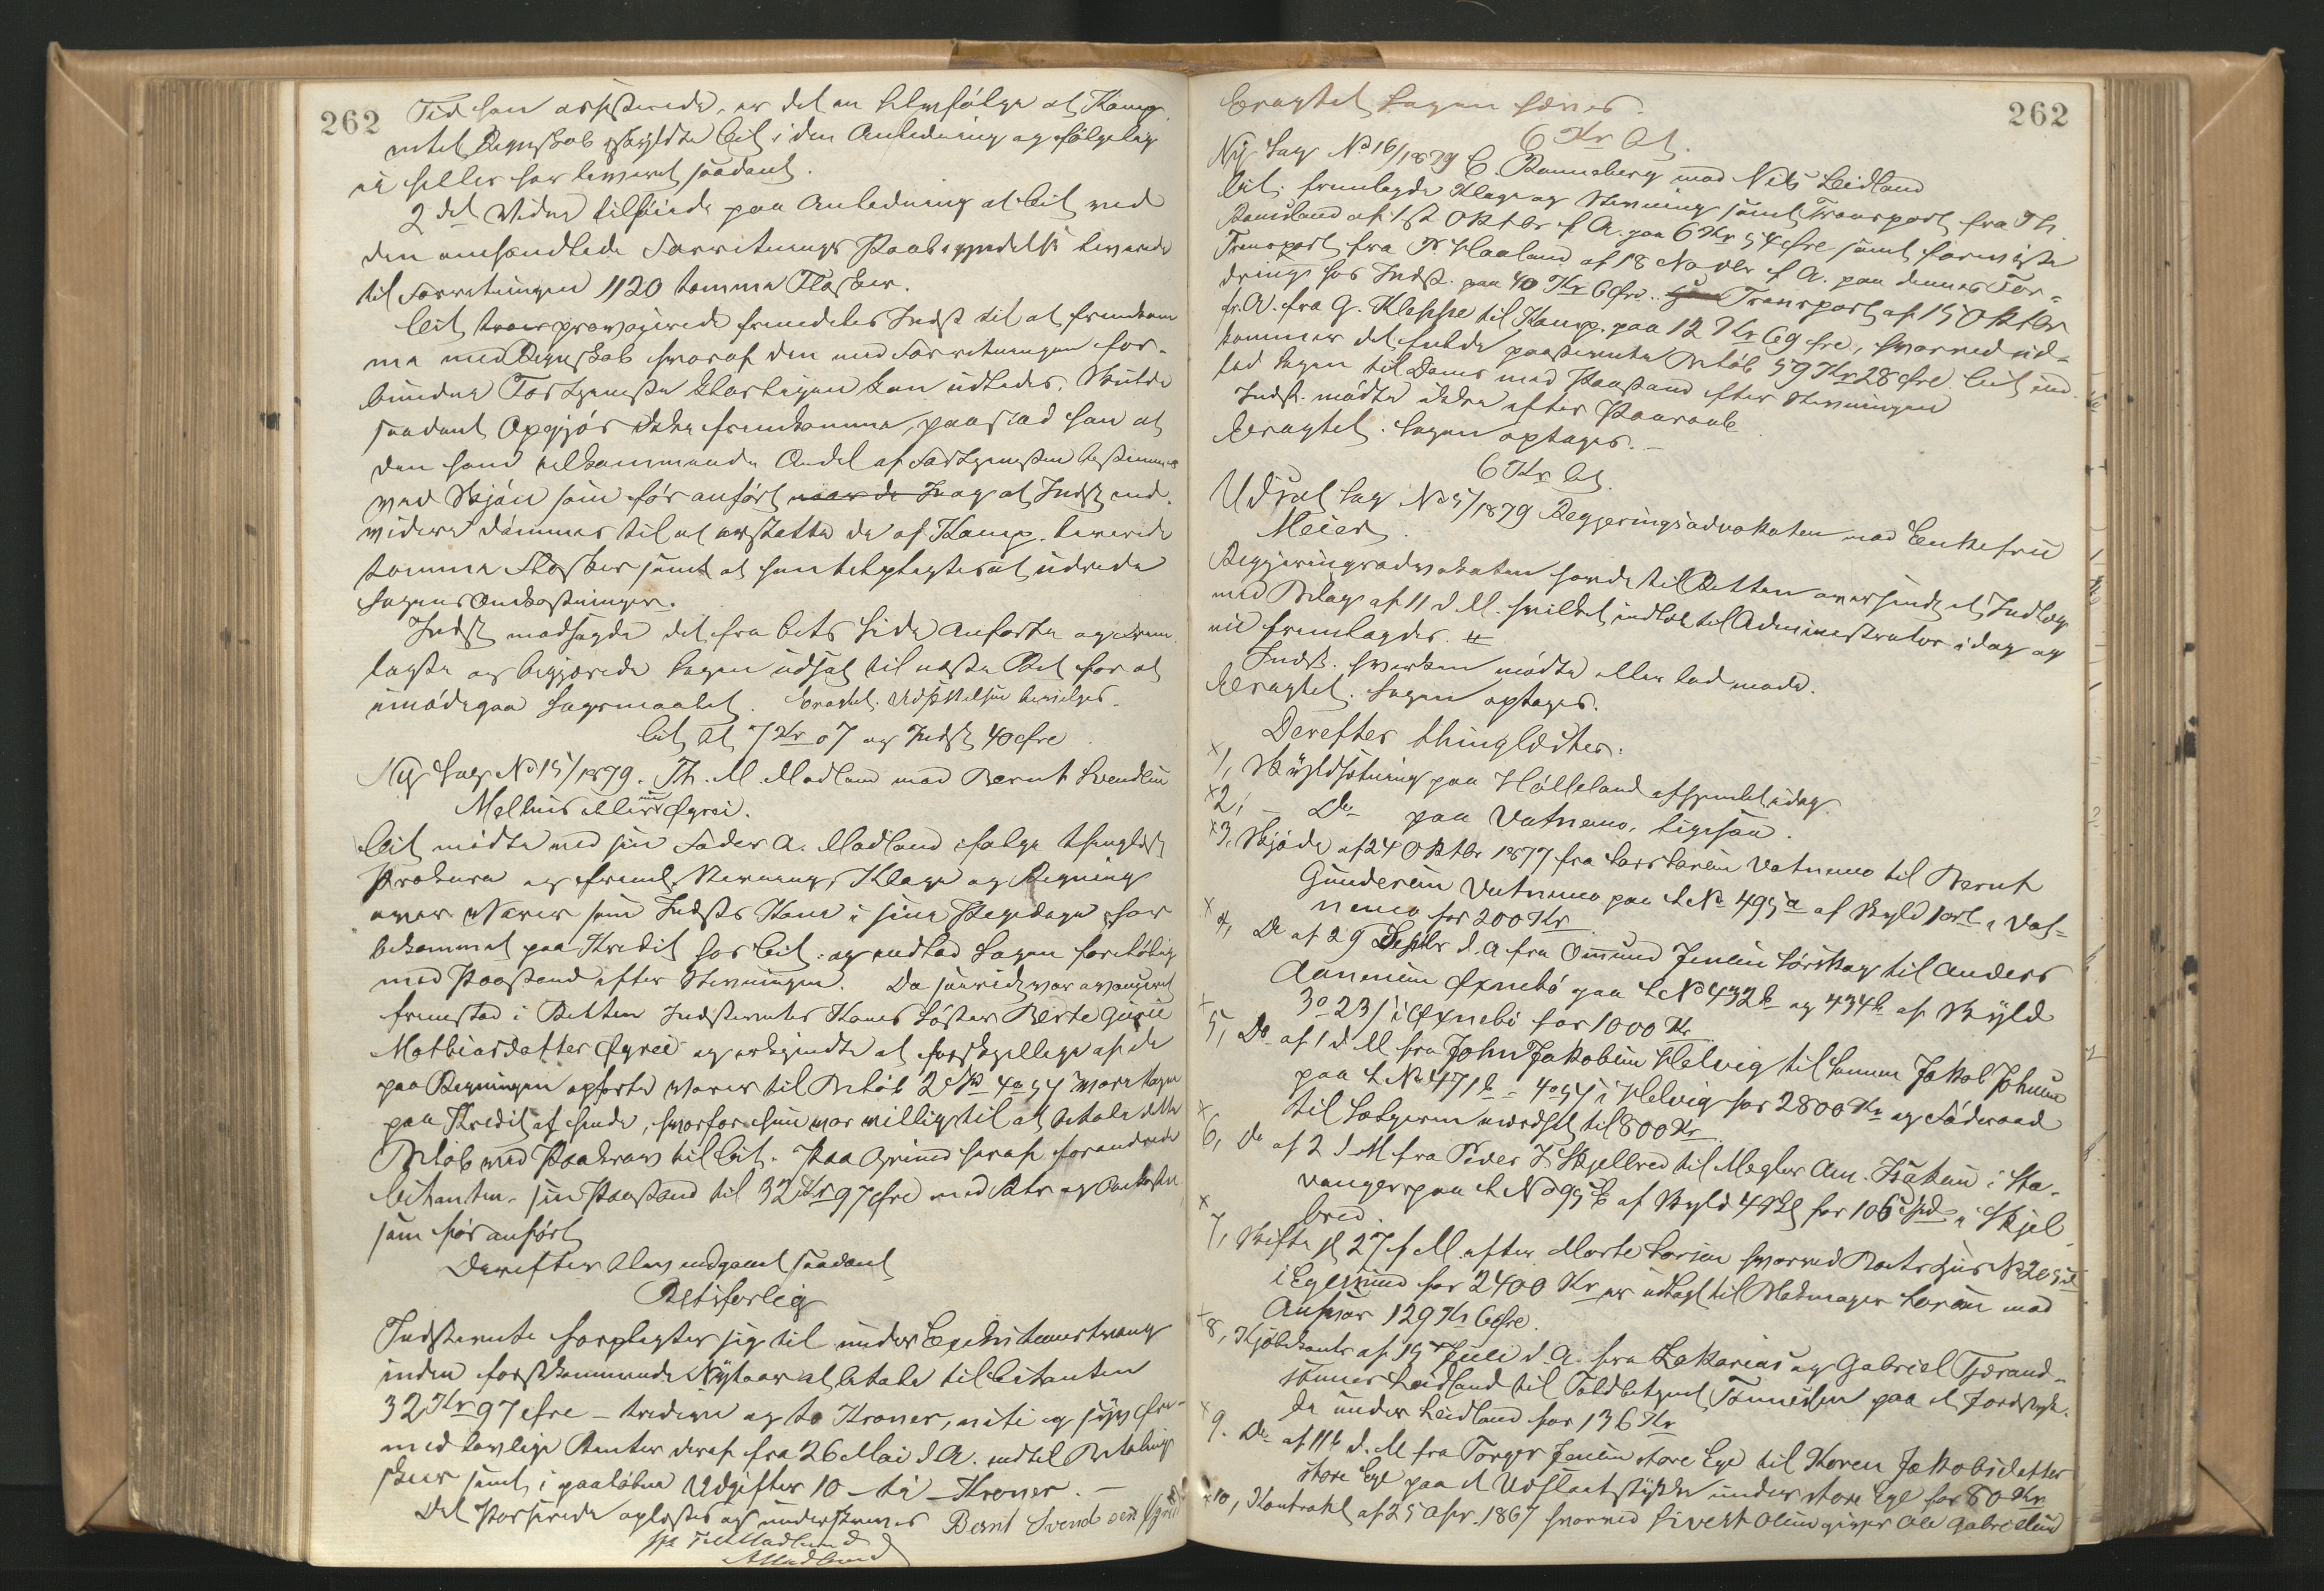 262
Tid han assisterede, er det en Selvfølge at Komp.
intet Regnskab skyldte Cit. i den Anledning og følgelig
ei heller har leveret saadant.
2det Vidne tilføiede paa Anledning at Cit. ved
den omhandlede Forretnings Paabegyndelse leverede
til Forretningen 1120 tomme Flasker.
Cit. provogerede fremdeles Indst. til at fremkom
me med Regnskab hvoraf den med Forretningen for-
bundne Fortjeneste kan udledes. Skulde
saadant Opgjør ikke fremkomme, paastod han at
den ham tilkommende Andel af Fortjenesten bestemmes
ved Skjøn som før anført og at Indst. end
videre dømmes til at erstatte de af Komp. leverede
tomme Flasker samt at han tilpligtes at udrede
Sagens Omkostninger.
Indst. modsagde det fra Cits Side Anførte og frem
lagte og begjærede Sagen udsat til næste Ret for at
imødegaa Søgsmaalet. Eragtet. Udsættelsen bevilges.
Cit. bt. 7 Kr 07 og Indst. 40 Øre
Ny Sag No 15/1879. Th. M. Madland mod Bernt Svendsen
Melhus eller Øgrei.
Cit. mødte ved sin Fader A. Madland ifølge thinglæst
Prokura og freml. Stevning, Klage og Regning
over Varer som Indsts Kone i sine Pigedage har
bekommet paa Kredit hos Cit. og indlod Sagen foreløbig
med Paastand efter Stevningen. Da
fremstod i Retten Indstevntes Kones Søster Berte Gurie
Mathiasdatter Øgrei og erkjendte at forskjellige af de
paa Regningen opførte Varer til Beløb 2 Spd 4 o 54 vare tagne
paa Kredit af hende, hvorfor hun var villig til at betale dette
Beløb ved Paakrav til Cit. Paa Grund heraf forandrede
Citanten sin Paastand til 32 Kr 97 Øre med Rtr og Omkostn
som før anført
Derefter blev indgaaet saadant
Retsforlig
Indstevnte forpligter sig til under Exekutionstvang
inden førstkommende Nytaar at betale til Citanten
32 Kr 97 Øre – tredive og to Kroner, niti og syv Øre-
med lovlige Renter deraf fra 26 Mai d. A. indtil Betaling
skeer samt i paaløbne Udgifter 10 – ti – Kroner. –
Det Passerede oplæstes og underskreves Bernt Svendsen Øgrei
pp Th M Madland
A Madland
262
Eragtet Sagen hæves.
6 Kr bt.
Ny Sag No 16/1879 C. Rønneberg mod Nils Leidland
Cit. fremlagde Klage og Stevning samt Transport fra Th.
Ramsland af 1ste Oktbr f. A. paa 6 Kr 54 Øre samt foreviste
Transport fra P. Haaland af 18 Novbr f. A. paa dennes For-
dring hos Indst. paa 40 Kr 6 Øre. Transport af 15 Oktbr
f. A. fra G. Kleppe til Komp. paa 12 Kr 69 Øre, hvorved ud-
kommer det fulde paastevnte Beløb 59 Kr 28 Øre. Cit. ind
lod Sagen til Doms med Paastand efter Stevningen
Indst. mødte ikke efter Paaraab
Eragtet. Sagen optages. –
6 Kr bt.
Udsat Sag No 5/1879 Regjeringsadvokaten mod Enkefru
Meier.
Regjeringsadvokaten havde til Retten oversendt et Indlæg
med Bilag af 11 d. M. hvilket indløb til Administrator idag og
nu fremlagdes.
Indst. hverken mødte eller lod møde.
Eragtet. Sagen optages.
Derefter thinglæstes:
x 1, Skyldsætning paa Hølleland afhjemlet idag.
x 2, – Do paa Vatnemo, ligesaa.
x 3, Skjøde af 24 Oktbr 1877 fra Lars Larsen Vatnemo til Bernt
Gundersen Vatnemo paa L No 495 a af Skyld 1 ort i Vat-
nemo for 200 Kr
x 4, Do af 29 Septbr d. A fra Omund Jensen Lørskog til Anders
Aanensen Øxnebø paa L No 432 b og 434 b af Skyld
3 o 23 ß i Øxnebø for 1000 Kr
x 5, Do af 1 d M fra John Jakobsen Helvig til Sønnen Jakob Johnsen
paa L No 471 b = 4 o 5 ß i Helvig for 2800 Kr og Føderaad
til Sælgeren værdsat til 800 Kr
x 6, Do af 2 d. M fra Peder J. Skjelbred til Megler Am. Isaksen i Sta-
vanger paa L No 95 b af Skyld 4 Skl for 106 Spd. i Skjel
bred.
x 7, Skifte sl. 27 f M. efter Marte Larsen hvorved Part i Hus No 205 d
i Egersund for 2400 Kr er udlagt til Blokmager Larsen mod
Ansvar 129 Kr 6 Øre.
x 8, Kjøbekontr. af 19 Juli d. A. fra Zakarias og Gabriel Tjerand-
sønner Leidland til Toldbetjent Tønnesen paa et Jordstyk-
ke under Leidland for 136 Kr
x 9. Do af 11te d. M fra Torger Jensen store Ege til Karen Jakobsdatter
store Ege paa et Udslaatstykke under store Ege for 80 Kr.
x 10, Kontrakt af 25 Apr. 1867 hvorved Sivert Olsen giver Ole Gabrielsen